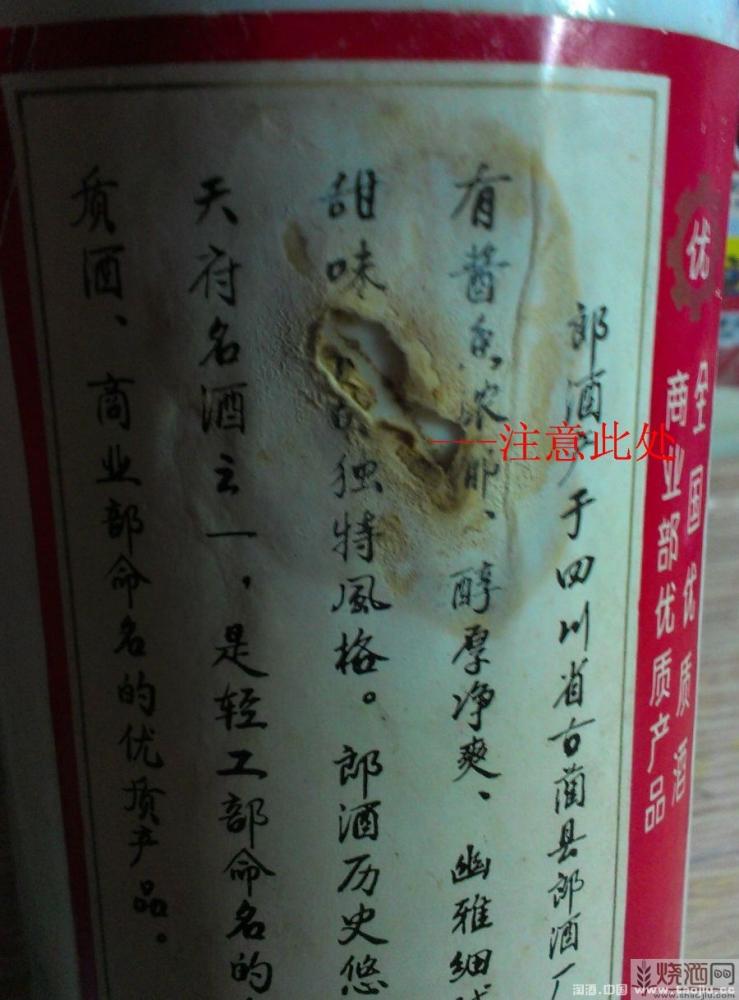 优
全国优质酒
商业部优质产品
郎酒产于四川省古蔺县郎酒厂
有酱香浓郁、醇厚净爽、幽雅细腻
甜味 独特风格。郎酒历史悠
天府名酒之一,是轻工部命名的
质酒、商业部命名的优质产品。
----注意此处
烧酒网
www.shaojiu.com
淘酒.中国 www.taojiu.cc